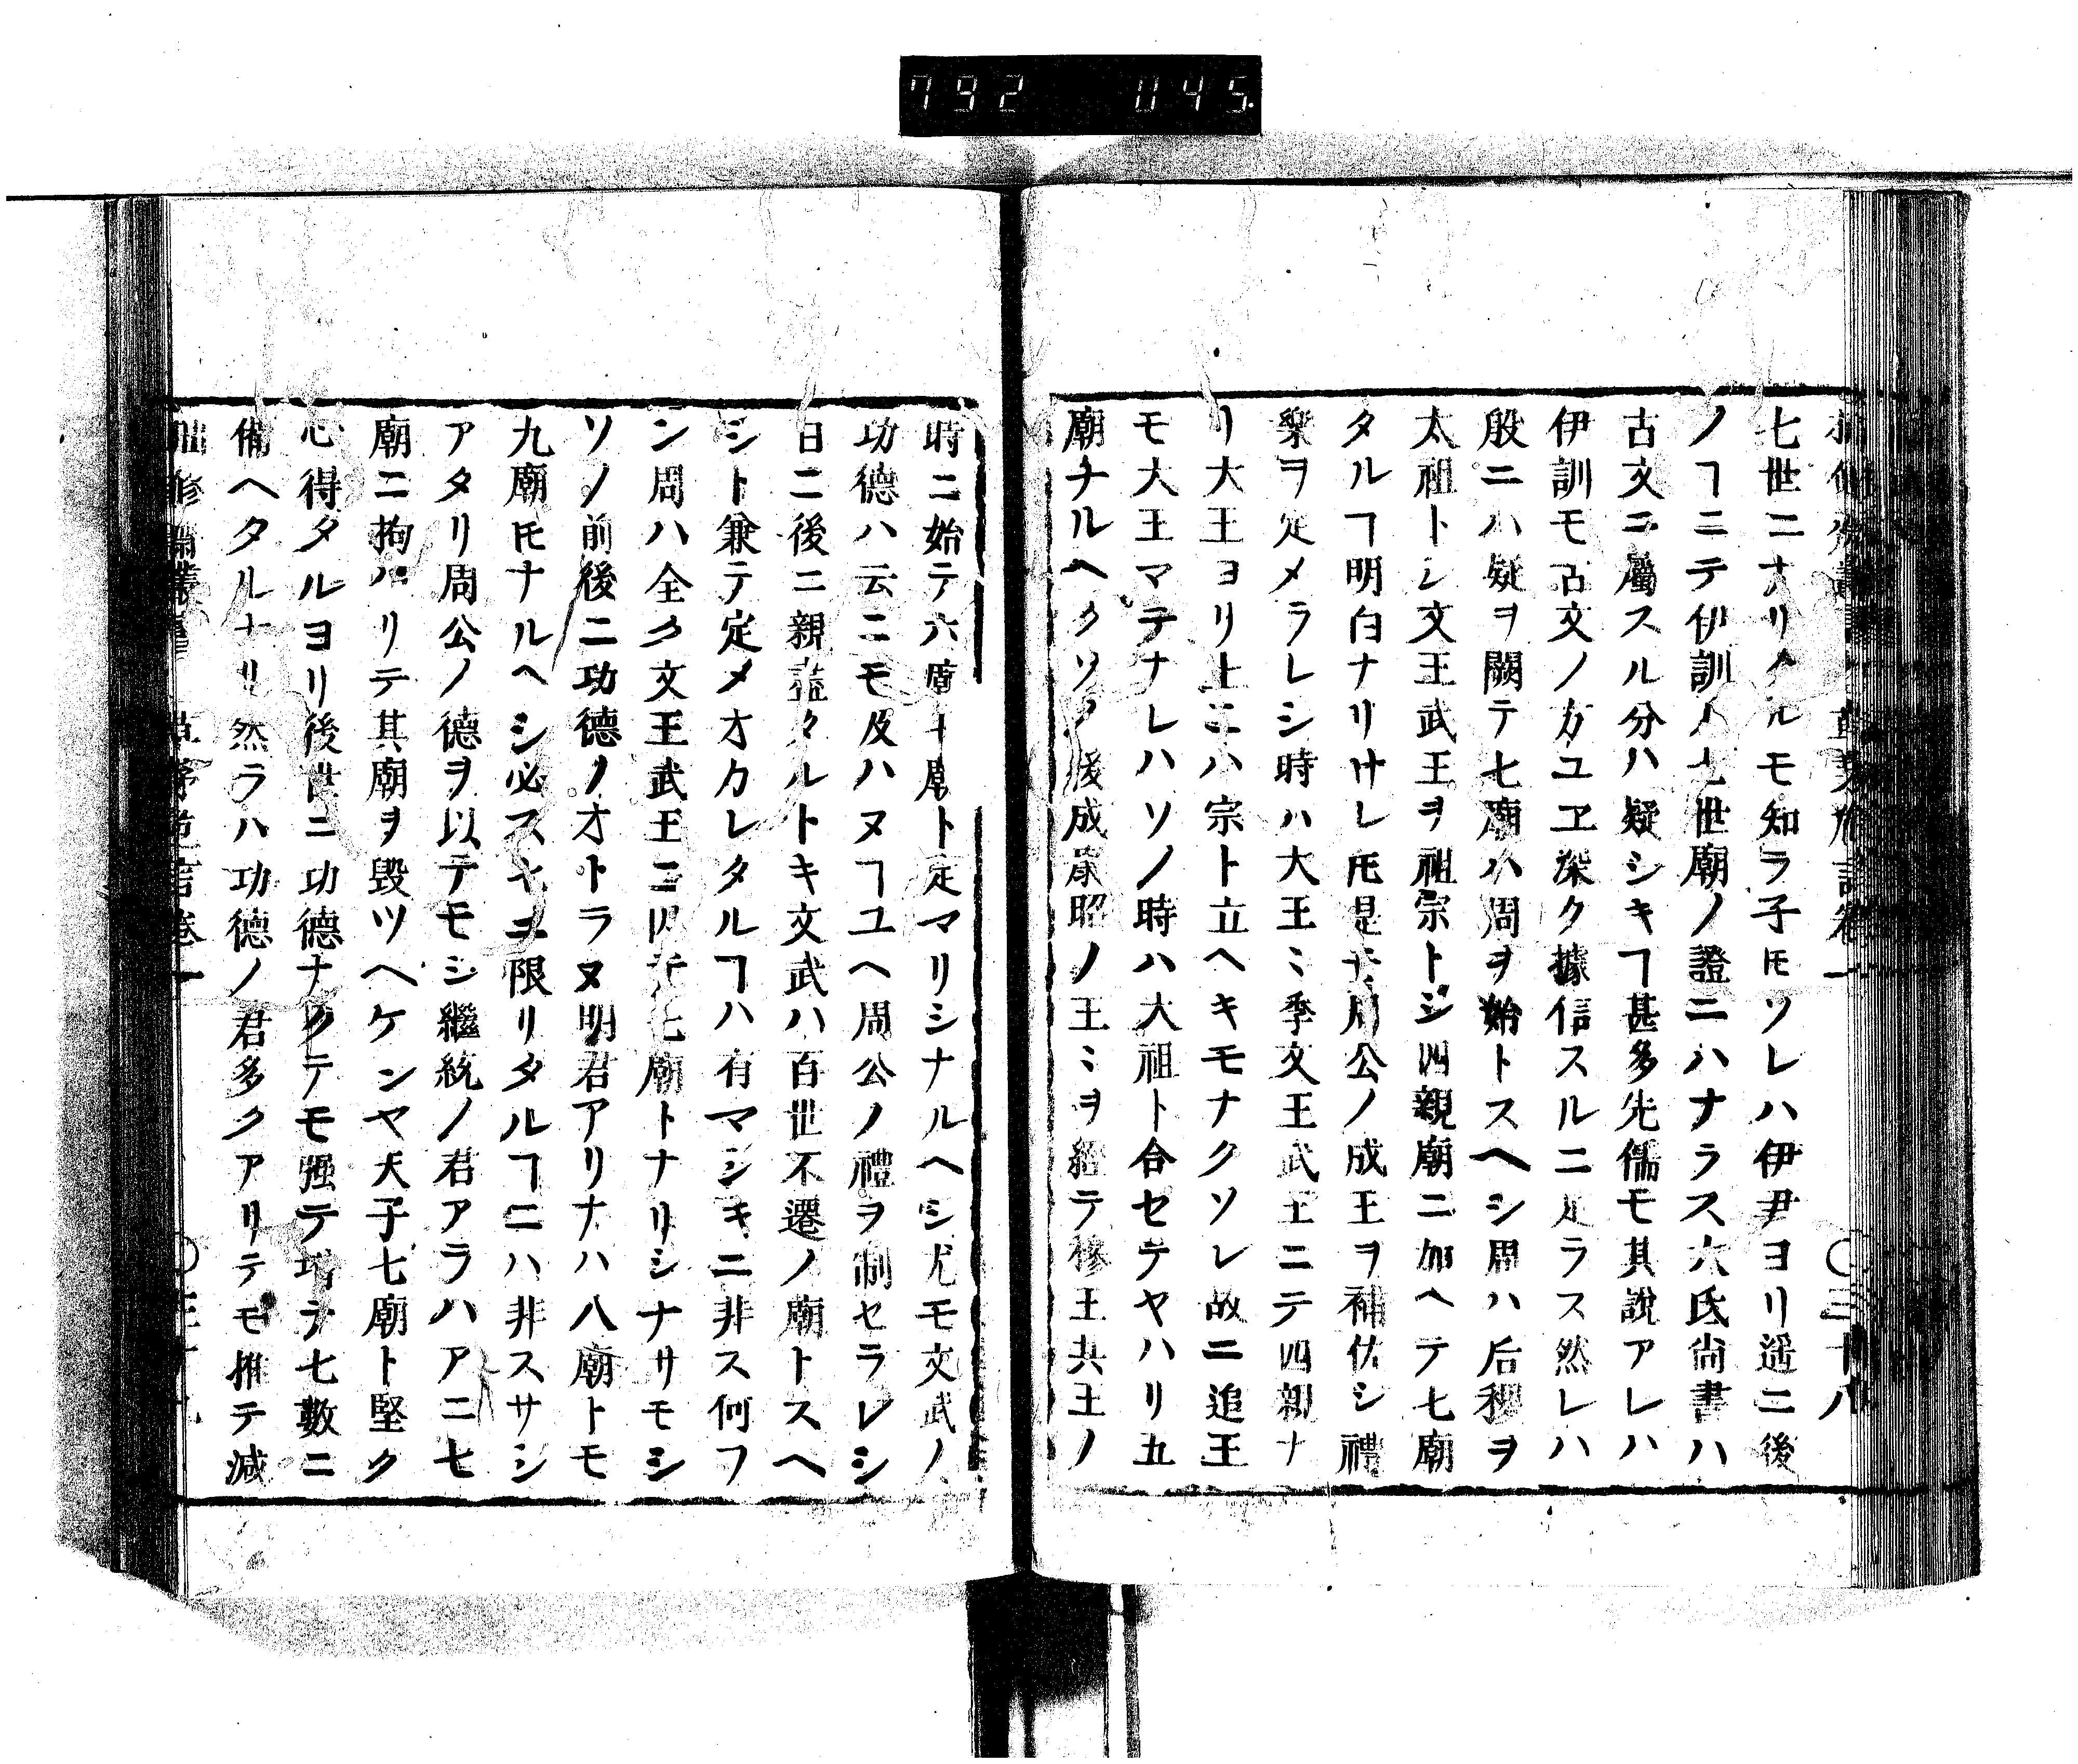 792 045
七世ニナリタルモ知ラ子𪜈ソレハ伊尹ヨリ遥ニ後
ノヿニテ伊訓ハ七世廟ノ證ニハナラス六氏尚書ハ
古文ニ屬スル分ハ疑シキヿ甚多先儒モ其說アレハ
伊訓モ古文ノ方ユヱ深ク據信スルニ足ラス然レハ
殷ニハ疑ヲ闕テ七廟ハ周ヲ始トスヘシ周ハ后稷ヲ
太祖トシ文王武王ヲ祖宗トシ四親廟ニ加ヘテ七廟
タルヿ明白ナリサレ𪜈是モ周公ノ成王ヲ補佐シ禮
樂ヲ定メラレシ時ハ大王ミ季文王武王ニテ四親ナ
リ大王ヨリ上ニハ宗ト立ヘキモナクソレ故ニ追王
モ大王マテナレハソノ時ハ大祖ト合セテヤハリ五
廟ナルヘクソノ後成康昭ノ王ミヲ經テ穆王共王ノ
時ニ始テ六廟七廟ト定マリシナルヘシ尤モ文武ノ
功德ハ云ニモ及ハヌヿユヘ周公ノ禮ヲ制セラレシ
日ニ後ニ親盡タルトキ文武ハ百世不遷ノ廟トスヘ
シト兼テ定メオカレタルヿハ有マシキニ非ス何フ
ン周ハ全ク文王武王ニ因テ七廟トナリシナリモシ
ソノ前後ニ功德ノオトラヌ明君アリナハ八廟トモ
九廟𪜈ナルヘシ必ス七ニ限リタルヿニハ非スサシ
アタリ周公ノ德ヲ以テモシ繼統ノ君アラハアニ七
廟ニ拘ハリテ其廟ヲ毀ツヘケンヤ天子七廟ト堅ク
心得タルヨリ後世ニ功德ナクテモ強テ増テ七數ニ
備ヘタルナリ然ラハ功德ノ君多クアリテモ推テ減